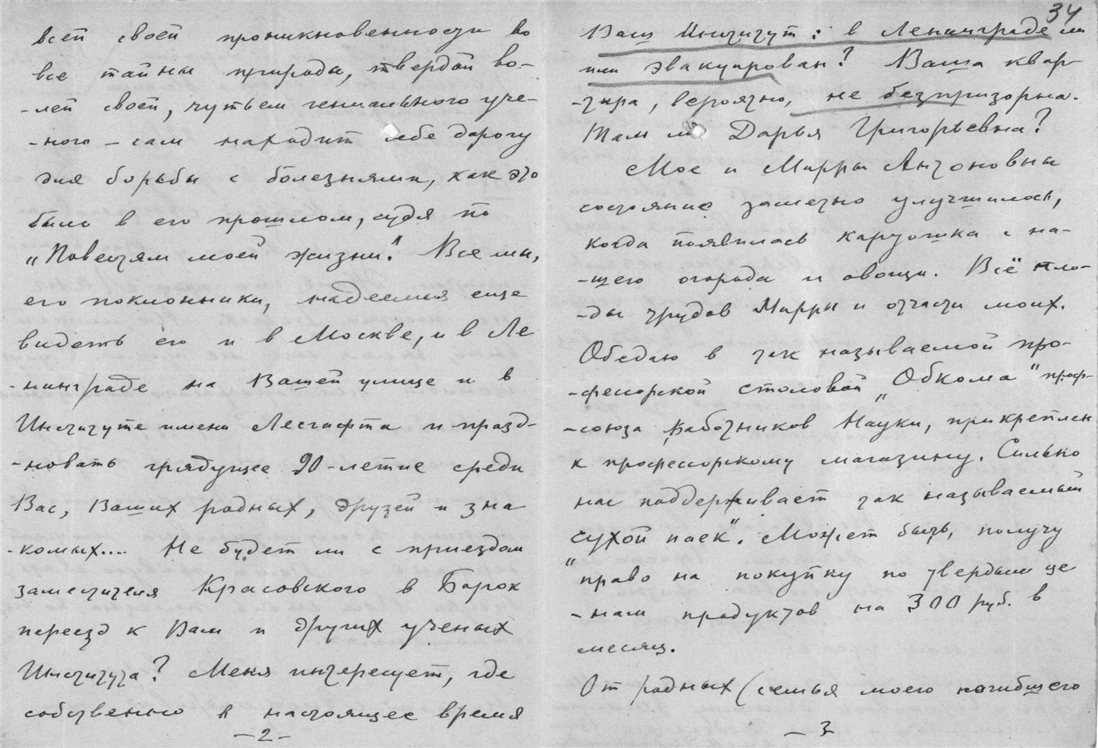 всей своей проникновенности во
все тайны природы, твердой во-
-лей своей, чутьем гениального уче-
-ного – сам находит себе дорогу
для борьбы с болезнями, как это
было в его прошлом, судя по
„Повестям моей жизни". Все мы,
его поклонники, надеемся еще
видеть его и в Москве, и в Ле
-нинграде на Вашей улице и в
Институте имени Лесгафта и празд-
-новать грядущее 90-летие среди
Вас, Ваших родных, друзей и зна
-комых... Не будет ли с приездом
заместителя Красовского в Борок
переезд к Вам и других ученых
Института? Меня интересует, где
собственно в настоящее время
– 2 –
34
Ваш Институт: в Ленинграде ли
или эвакуирован? Ваша квар-
-тира, вероятно, не безпризорна.
Там ли Дарья Григорьевна?
Мое и Мирры Антоновны
состояние заметно улучшилось,
когда появилась картошка с на-
-шего огорода и овощи. Всё пло-
-ды трудов Мирры и отчасти моих.
Обедаю в так называемой про-
-фессорской столовой „Обкома" проф-
-союза работников Науки, прикреплен
к профессорскому магазину. Сильно
нас поддерживает так называемый
сухой паек". Может быть, получу
"право на покупку по твердым це
-нам продуктов на 300 руб. в
месяц.
От родных (семья моего погибшего
– 3